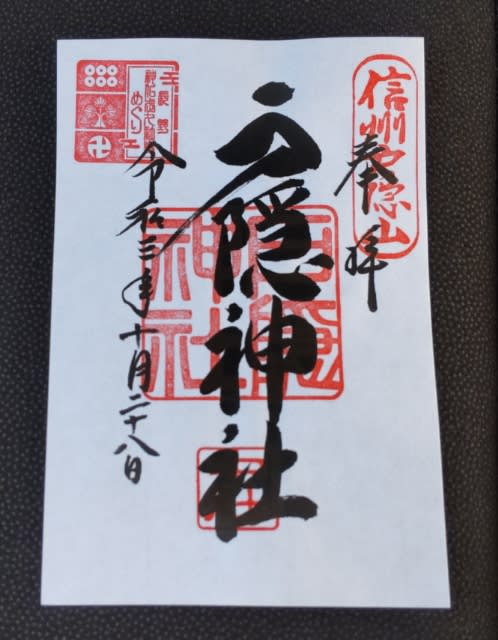 信州戸隠山
奉拝
戸隠神社
令和三年十月二十八日
めぐり